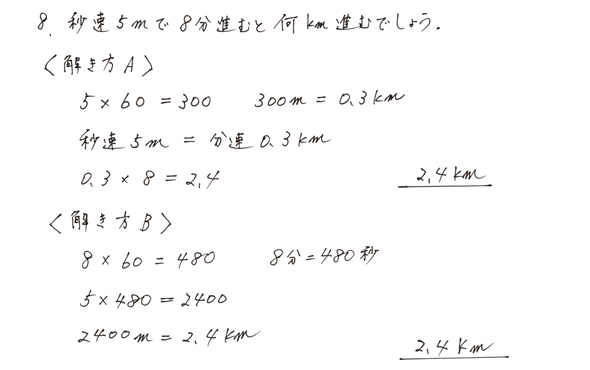 8. 秒速5mで8分進むと何km進むでしょう.
〈解き方A〉
5×60=300 300m=0.3km
秒速5m=分速0.3km
0.3×8=2.4 2.4km
〈解き方B〉
8×60=480 8分=480秒
5×480=2400
2400m=2.4km 2.4km